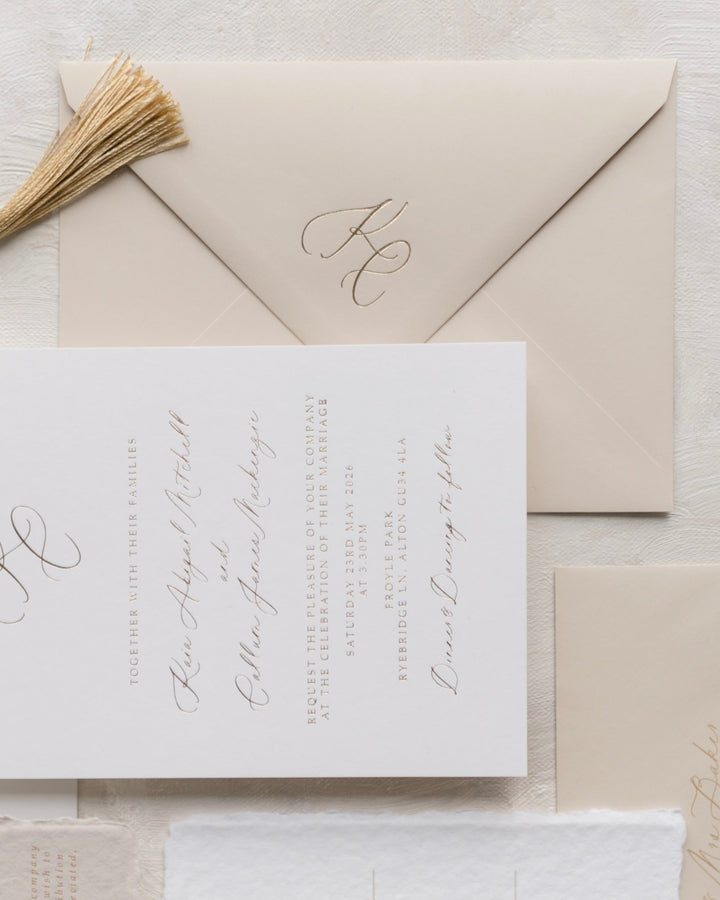 K
C
K
C
TOGETHER WITH THEIR FAMILIES
Kara Abigail Mitchell
and
Callum James Mackenzie
REQUEST THE PLEASURE OF YOUR COMPANY
AT THE CELEBRATION OF THEIR MARRIAGE
SATURDAY 23RD MAY 2026
AT 3.30PM
FROYLE PARK
RYEBRIDGE LN, ALTON GU34 4LA
Dinner & Dancing to follow
company
wish to
Mrs Baker